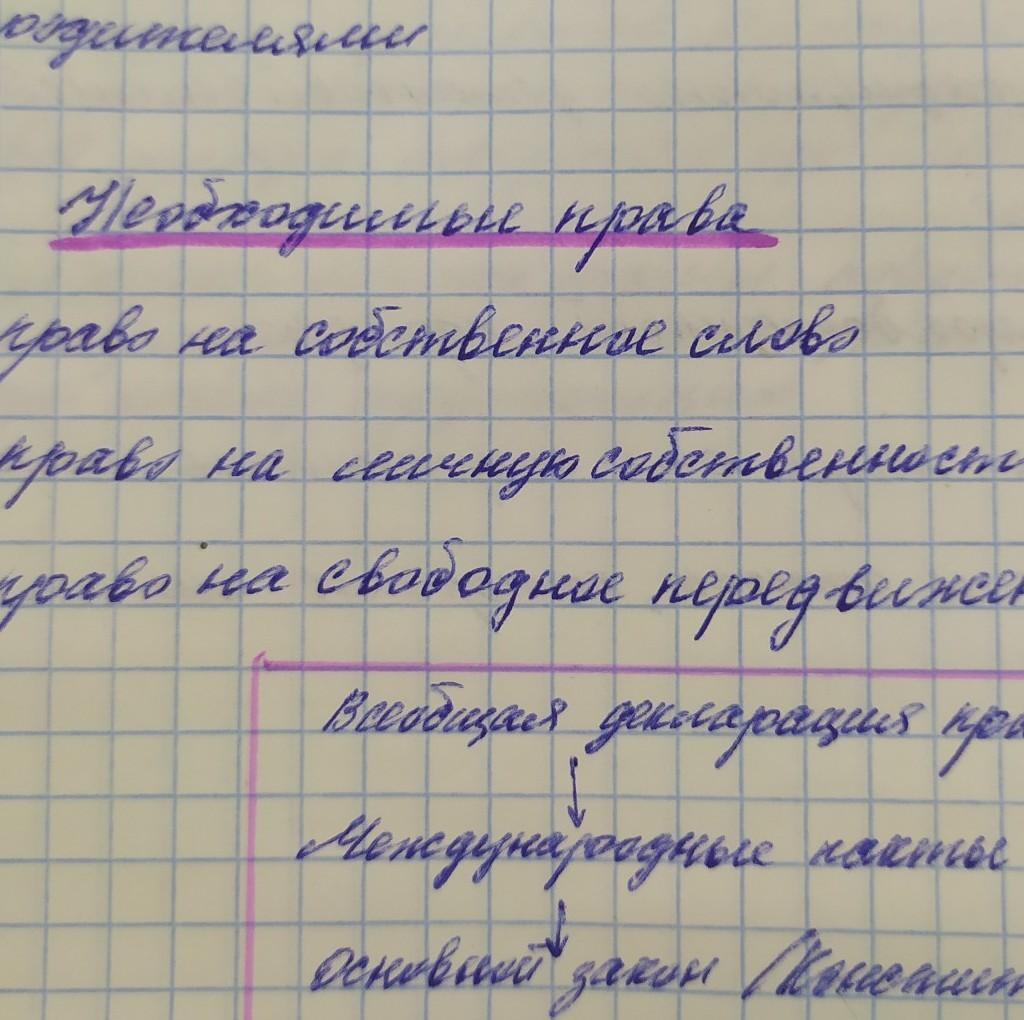 Необходимые права
право на собственное слово
право на личную собственност
право на свободное передвижен
Всеобщая декларация пра
↓
Международные пакты
↓
Основной закон (Консти